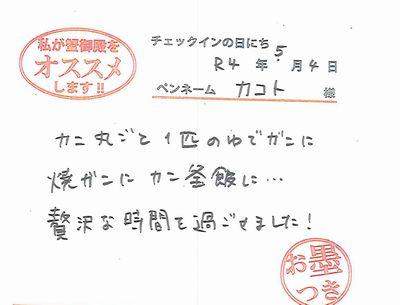 私が蟹御殿を
オススメ
します!!
チェックインの日にち
R4 年 5 月 4 日
ペンネーム カコト 様
カニ丸ごと1匹のゆでガニに
焼ガニに カニ釜飯に…
贅沢な時間を過ごせました!
お墨
つき